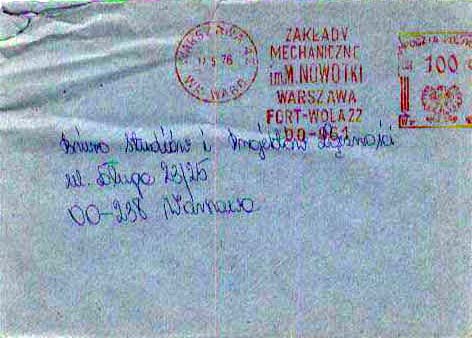 WARSZAWA 42
17.5.76
ZAKŁADY
MECHANICZNE
im.M.NOWOTKI
WARSZAWA
FORT-WOLA 22
00-961
POCZTA POLSKA
100
Biuro Studiów i Projektów Łączności
ul. Długa 23/25
00-238 Warszawa